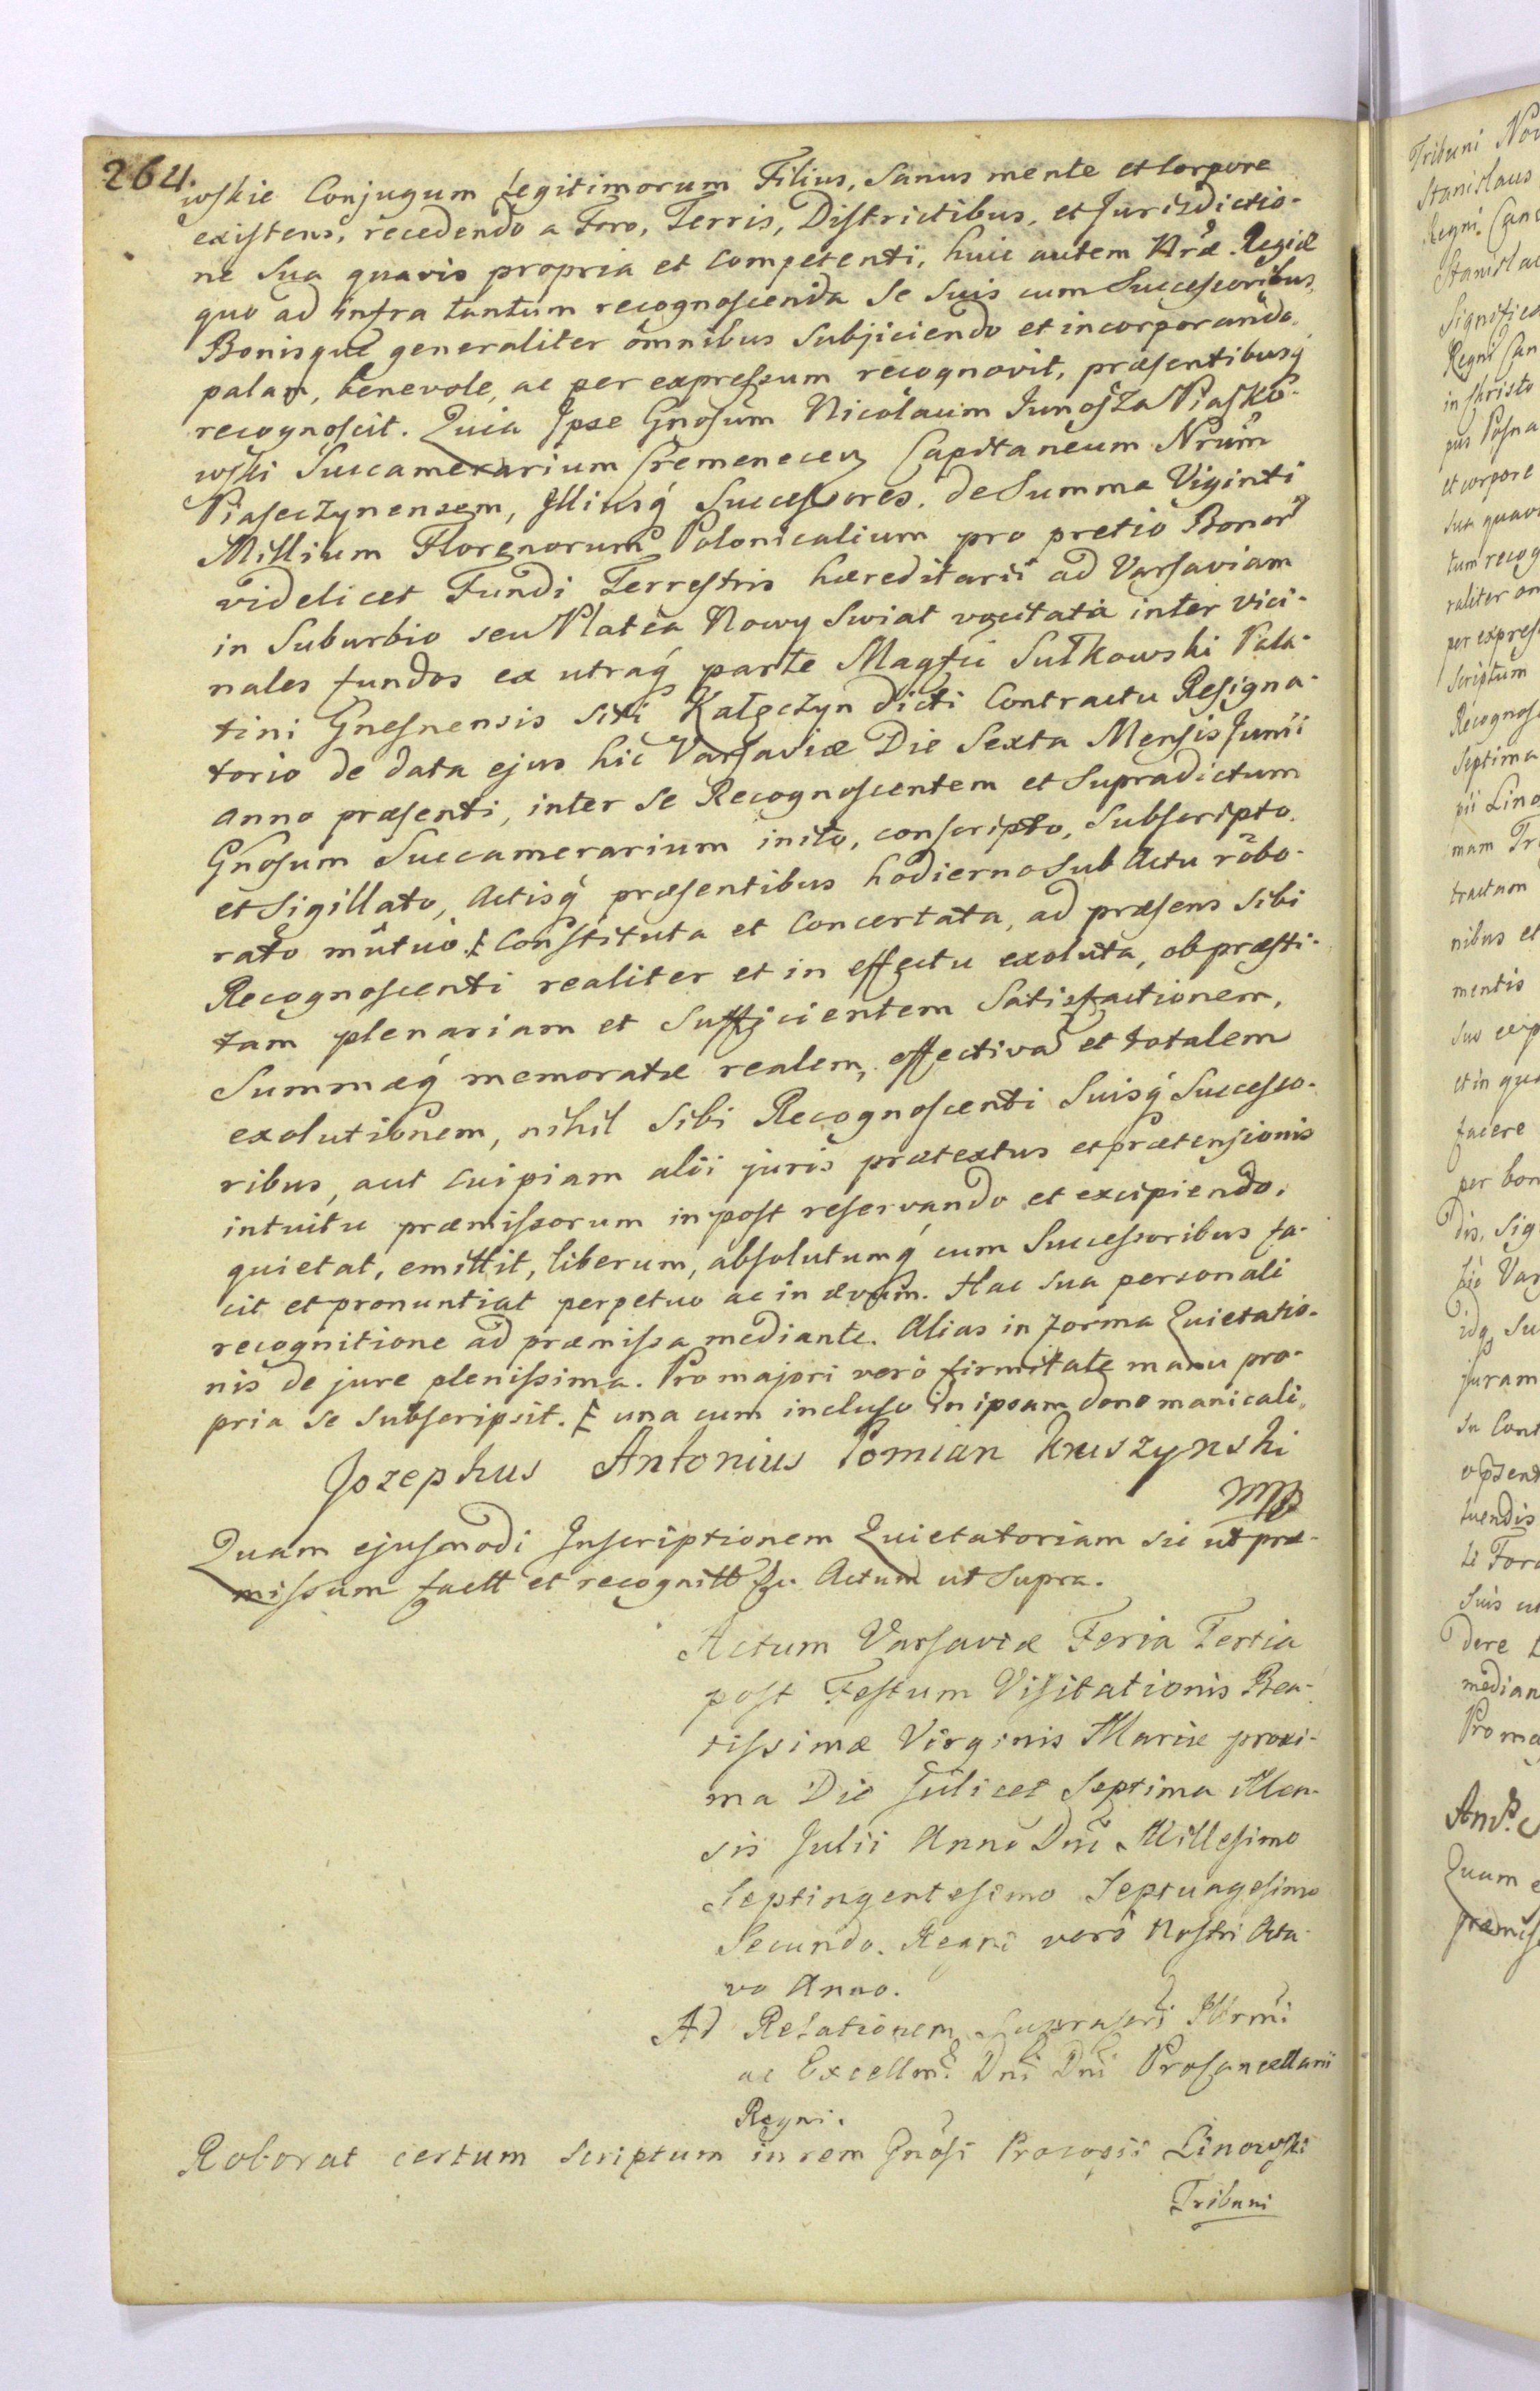 264.
wskie Conjugum Legitimorum Filius, Sanus mente et Corpore
existens, recedendo a Foro, Terris, Districtibus, et Jurisdictio-
ne Sua quavis propria et Competenti, huic autem Nræ Regiæ
quo ad infra tantum recognoscenda Se Suis cum Successoribus,
Bonisque generaliter omnibus Subjiciendo et incorporando.
palam, benevole, ac per expressum recognovit, præsentibusq́
recognoscit. Quia Ipse Gnosum Nicolaum Junosza Piasko-
wski Succamerarium Cremenecen Capitaneum Nrum
Piaseczynensem, Illiusq́ Successores. de Summa Viginti
Millium Florenorum Polonicalium pro pretio Bonor
videlicet Fundi Terrestris hæreditarii ad Varsaviam
in Suburbio seu Platea Nowy Swiat vocitata inter vici-
nales fundos ex utraq́ parte Magfci Sułkowski Pala-
tini Gnesnensis siti Kałęczyn dicti Contractu Resigna-
torio de data ejus hic Varsaviæ Die Sexta Mensis Junii
anno præsenti, inter Se Recognoscentem et Supradictum
Gnosum Succamerarium inito, conscripto, Subscripto.
et Sigillato, Actisq́ præsentibus hodierno Sub Actu robo-
rato mutuo. Constituta et Concertata, ad præsens Sibi
Recognoscenti realiter et in effectu exoluta, ob præsti-
tam plenariam et Sufficientem Satisfactionem,
Summæq́ memoratæ realem, effectivã et totalem
exolutionem, nihil Sibi Recognoscenti Suisq́ Successo-
ribus, aut cuipiam alii juris prætextus et prætensionis
intuitu præmissorum inpost reservando et excipiendo.
quietat, emittit, liberum, absolutumq́ cum Successoribus fa-
cit et pronuntiat perpetuo ac in ævum. Hac Sua personali
recognitione ad præmissa mediante. Alias in forma Quietatio-
nis de jure plenissima. Pro majori vero firmitate manu pro-
pria Se Subscripsit. una cum incluso in ipsum dono manicali.
Jozephus Antonius Pomian Kruszynski
mp
Quam ejusmodi Inscriptionem Quietatoriam sic ut præ-
missum factt et recognitt Actum ut Supra.
Actum Varsaviæ Feria Tertia
post Festum Visitationis Bea-
tissimæ Virginis Mariæ proxi-
ma Die scilicet Septima Men-
sis Julii Anno Dni Millesimo
Septingentesimo Septuagesimo
Secundo. Regni vero Nostri Octa-
vo Anno.
Ad Relationem Suprascri Illrmi
ac Excellmi Dni Dni Procancellarii
Regni.
Roborat certum scriptum in rem Gnosi Procopii Linowski
Tribuni
Tribuni
Stanislaus
Regni
in Christo
et corpore
Scriptum
Septima
mentis
facere